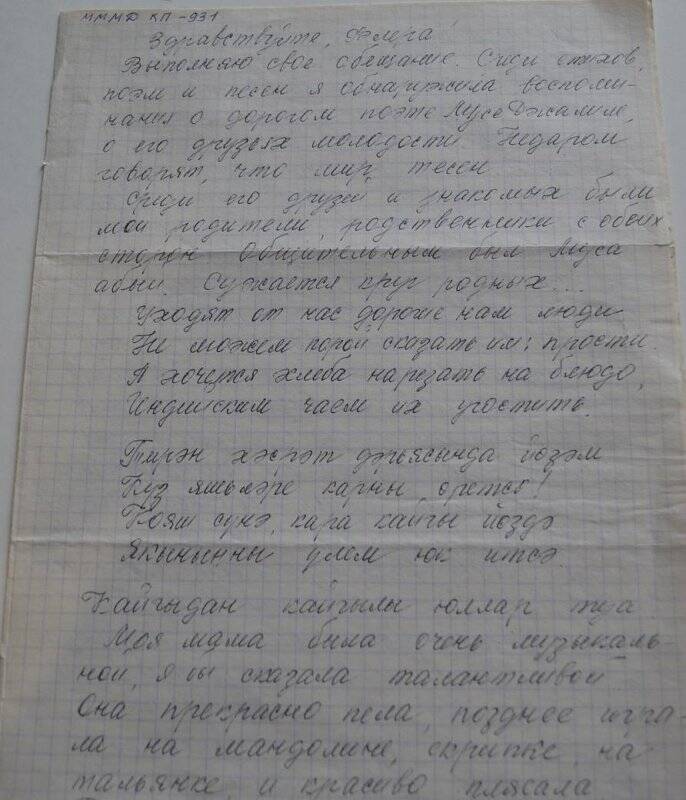 МММД КП-931
Здравствуйте, Флера!
Выполняю свое обещание. Среди стихов,
поэм и песен я обнаружила воспоми-
нания о дорогом поэте Мусе Джалиле,
о его друзьях молодости. Недаром
говорят, что мир тесен.
Среди его друзей и знакомых были
мои родители, родственники с обеих
сторон. Общительным был Муса
абый. Сужается круг родных...
Уходят от нас дорогие нам люди
Не можем порой сказать им: прости.
А хочется хлеба нарезать на блюдо,
Индийским чаем их угостить.
Тирэн хэсрэт дэрьясында йозэм
Куз яшьлэре карны эретсэ!
Кояш сунэ, кара кайгы йоздэ
Якынынны улем юк итсэ.
Кайгыдан кайгылы юллар туа
Моя мама была очень музыкаль-
ной, я бы сказала талантливой
Она прекрасно пела, позднее игра-
ла на мандолине, скрипке, на
тальянке, и красиво плясала